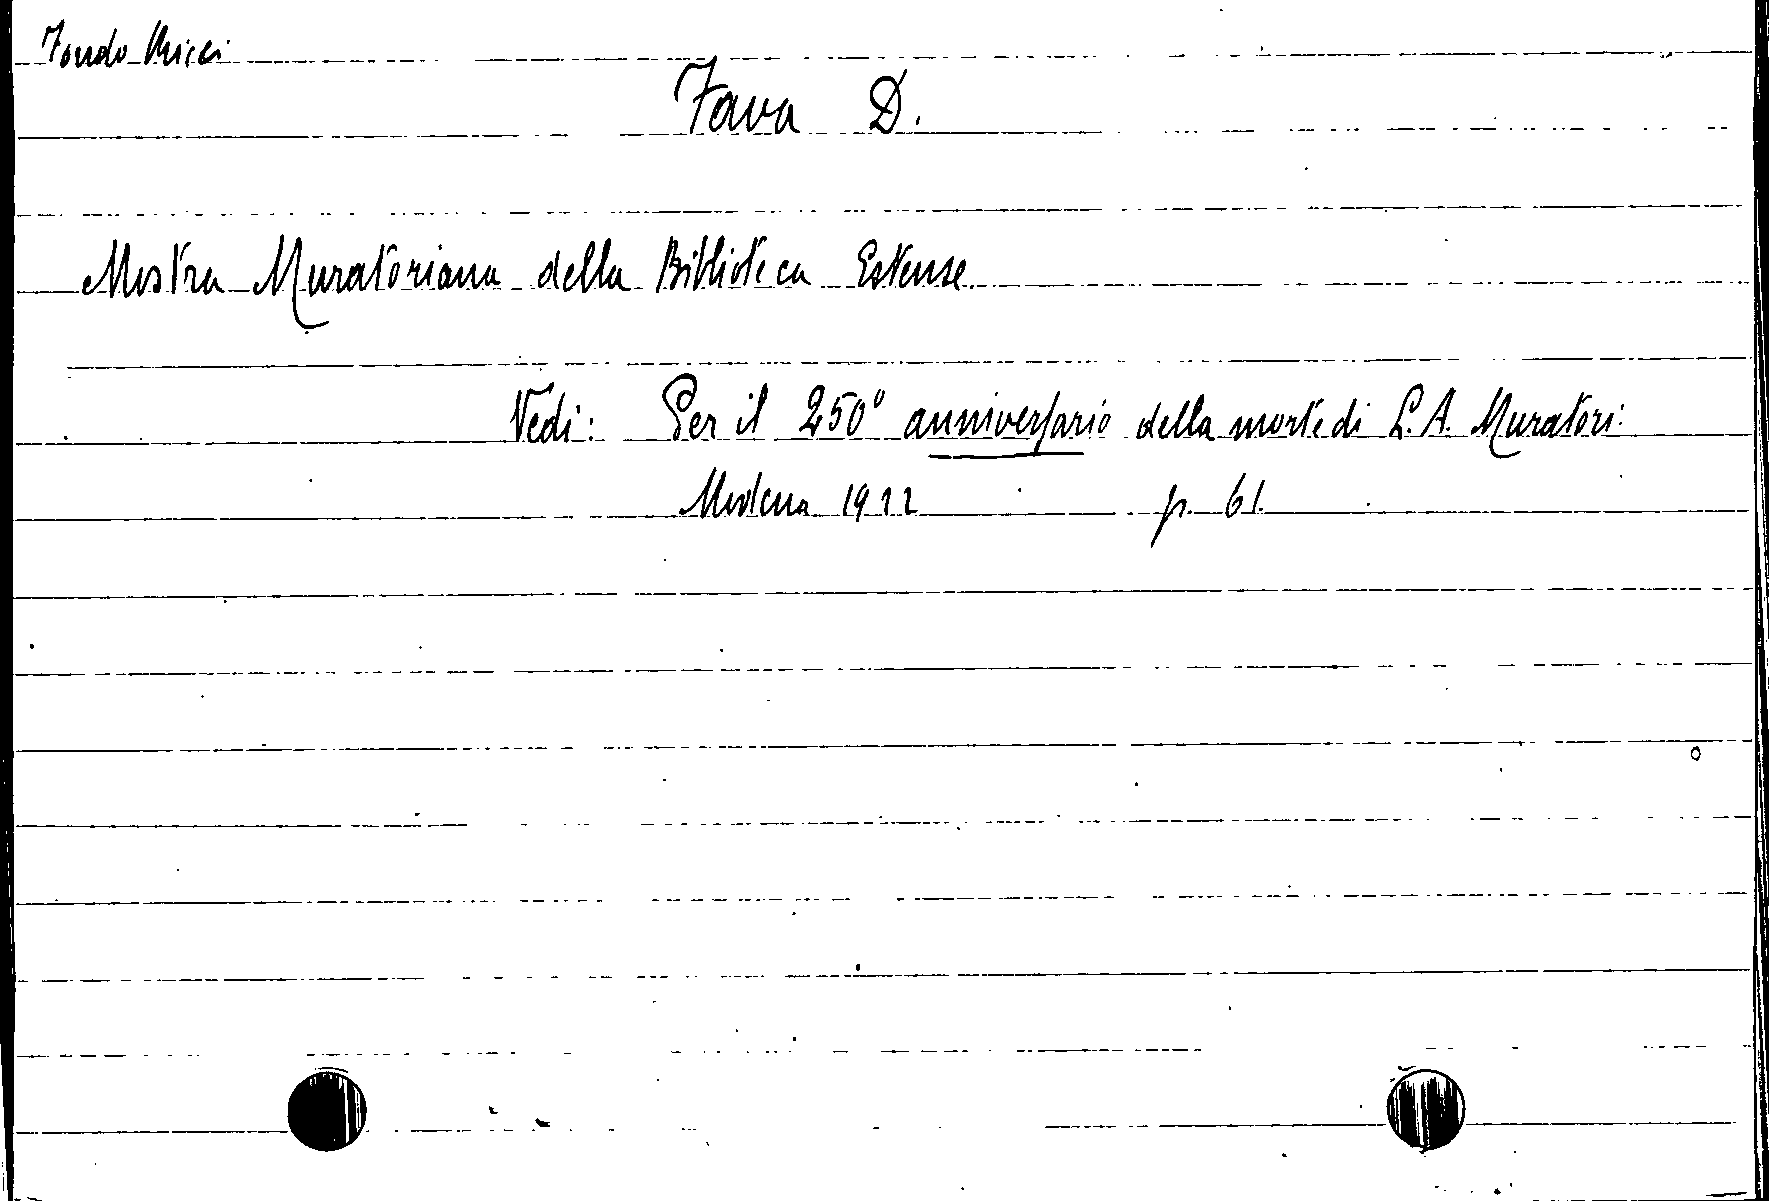 Fondo Ricci
Fava D.
Mostra Muratoriana della Biblioteca Estense
Vedi: Per il 250° anniversario della morte di L. A. Muratori.
Modena 1922 p. 61